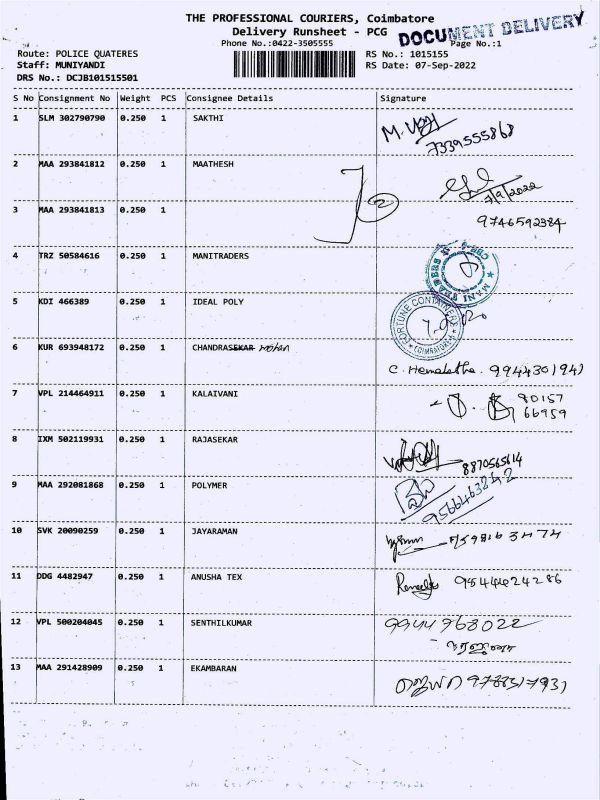 THE PROFESSIONAL COURIERS, Coimbatore
Delivery Runsheet - PCG
DOCUMENT DELIVERY
Phone No.:0422-3505555
Page No.:1
Route: POLICE QUATERES
RS No.: 1015155
Staff: MUNIYANDI
RS Date: 07-Sep-2022
DRS No.: DCJB101515501
S No Consignment No Weight PCS Consignee Details Signature
1 SLM 302790790 0.250 1 SAKTHI
7339555868
2 MAA 293841812 0.250 1 MAATHESH
7/9/2022
2
3 MAA 293841813 0.250 1
9746592384
4 TRZ 50584616 0.250 1 MANITRADERS
MANI TRADERS CBE-
5 KDI 466389 0.250 1 IDEAL POLY
FORTUNE CONTAINERS
COIMBATORE
6 KUR 693948172 0.250 1 CHANDRASEKAR Mohan
C. Hemalatha. 9944301941
7 VPL 214464911 0.250 1 KALAIVANI
90157
66959
8 IXM 502119931 0.250 1 RAJASEKAR
8870565614
9 MAA 292081868 0.250 1 POLYMER
9566463242
10 SVK 20090259 0.250 1 JAYARAMAN
11 DDG 4482947 0.250 1 ANUSHA TEX
9544624286
12 VPL 500204045 0.250 1 SENTHILKUMAR
9944768022
13 MAA 291428909 0.250 1 EKAMBARAN